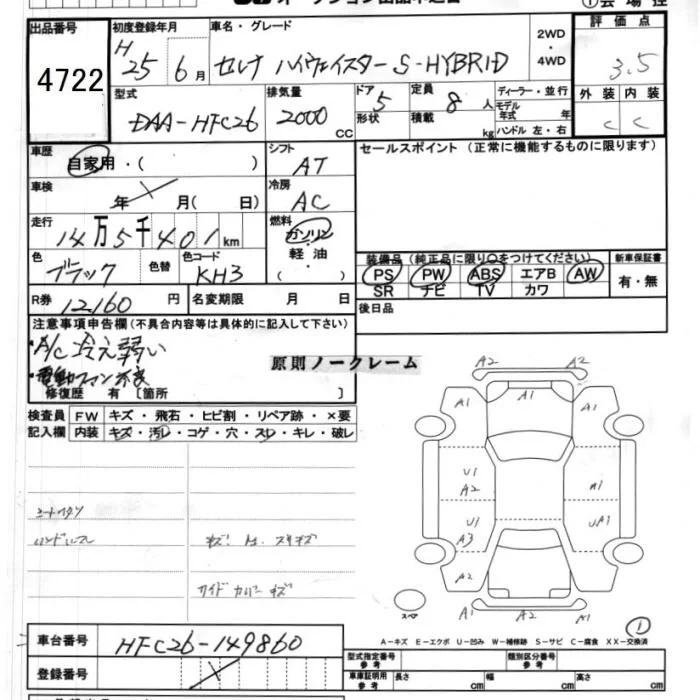 オークション出品申込書
①会場控
出品番号 4722
初度登録年月 H25 6月
車名・グレード セレナ ハイウェイスター S-HYBRID
2WD・4WD
評価点 3.5
型式 DAA-HFC26
排気量 2000 CC
ドア形状 5
定員 8人
積載 kg
ディーラー・並行
モデル年式 年
ハンドル 左・右
外装 内装
C C
車歴 自家用・( )
シフト AT
セールスポイント (正常に機能するものに限ります)
車検 年 月( 日)
冷房 AC
走行 14万5千401km
燃料 ガソリン 軽油 ・( )
色 ブラック 色替 色コード KH3
装備品 (純正品に限り○をつけてください)
新車保証書
PS PW ABS エアB AW
有・無
SR ナビ TV カワ
R券 12160円 名変期限 月 日
後日品
注意事項申告欄 (不具合内容等は具体的に記入して下さい)
・A/C冷え弱い
・電動ファン不良
原則ノークレーム
修復歴 有 〔箇所 〕
検査員記入欄
FW キズ・飛石・ヒビ割・リペア跡・×要
内装 キズ・汚レ・コゲ・穴・スレ・キレ・破レ
A2 A2
A1 A1 A1
U1
A2 A1
U1 UA1
A3
A2 A1
A1 A2 A1
スペア
①
A-キズ E-エクボ U-凹み W-補修跡 S-サビ C-腐食 XX-交換済
車台番号 HFC26-149860
登録番号
型式指定番号 参考
類別区分番号 参考
車庫証明用 参考 長さ cm 幅 cm 高さ cm